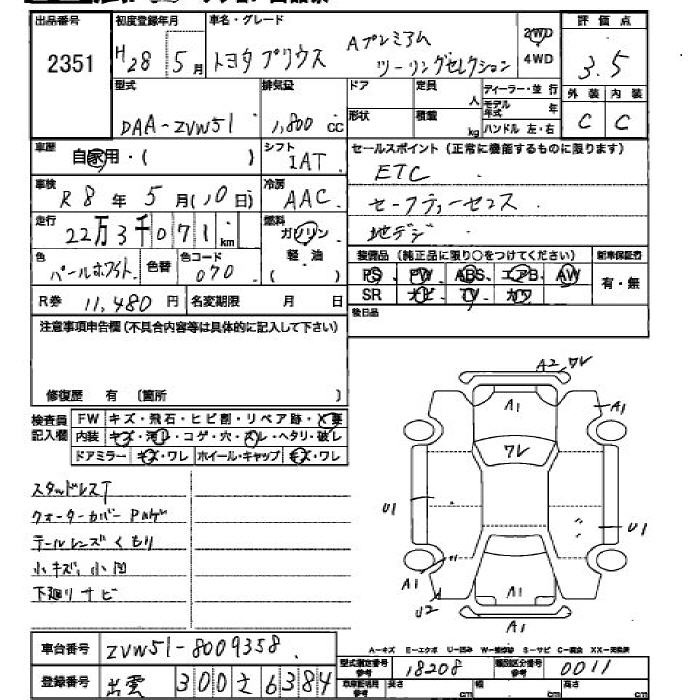 出品番号 初度登録年月 車名・グレード 2WD 4WD 評価点
2351 H28年5月 トヨタプリウス Aプレミアム ツーリングセレクション 3.5
型式 排気量 ドア 定員 人 ディーラー・並行 外装 内装
DAA-ZVW51 1,800 cc 形状 積載 kg モデル年式 年 ハンドル 左・右 C C
車歴 自家用・( ) シフト IAT セールスポイント (正常に機能するものに限ります)
ETC
車検 R8年5月(10日) 冷房 AAC
セーフティーセンス
走行 22万3千071km 燃料 ガソリン 軽・油 ( )
地デジ
色 パールホワイト 色替 色コード 070
装備品 (純正品に限り○をつけてください) 新車保証書
PS PW ABS エアB AW 有・無
R券 11,480円 名変期限 月 日 SR ナビ TV カワ
注意事項申告欄(不具合内容等は具体的に記入して下さい) 後日品
修復歴 有 (箇所 )
検査員記入欄 FW キズ・飛石・ヒビ割・リペア跡・
内装 キズ・汚レ・コゲ・穴・スレ・ヘタリ・破レ
ドアミラー キズ・ワレ ホイール・キャップ キズ・ワレ
A2 ワレ
A1 A1
ワレ
U1 U1
A1
U2 A1
A1
スタッドレスT
クォーターカバー
テールレンズくもり
小キズ、小凹
下廻りサビ
車台番号 ZVW51-8009358
A-キズ E-エクボ U-凹み S-サビ C-腐食
型式指定番号 18208 類別区分番号 0011
登録番号 出雲 300 さ 6384
長さ cm 幅 cm 高さ cm